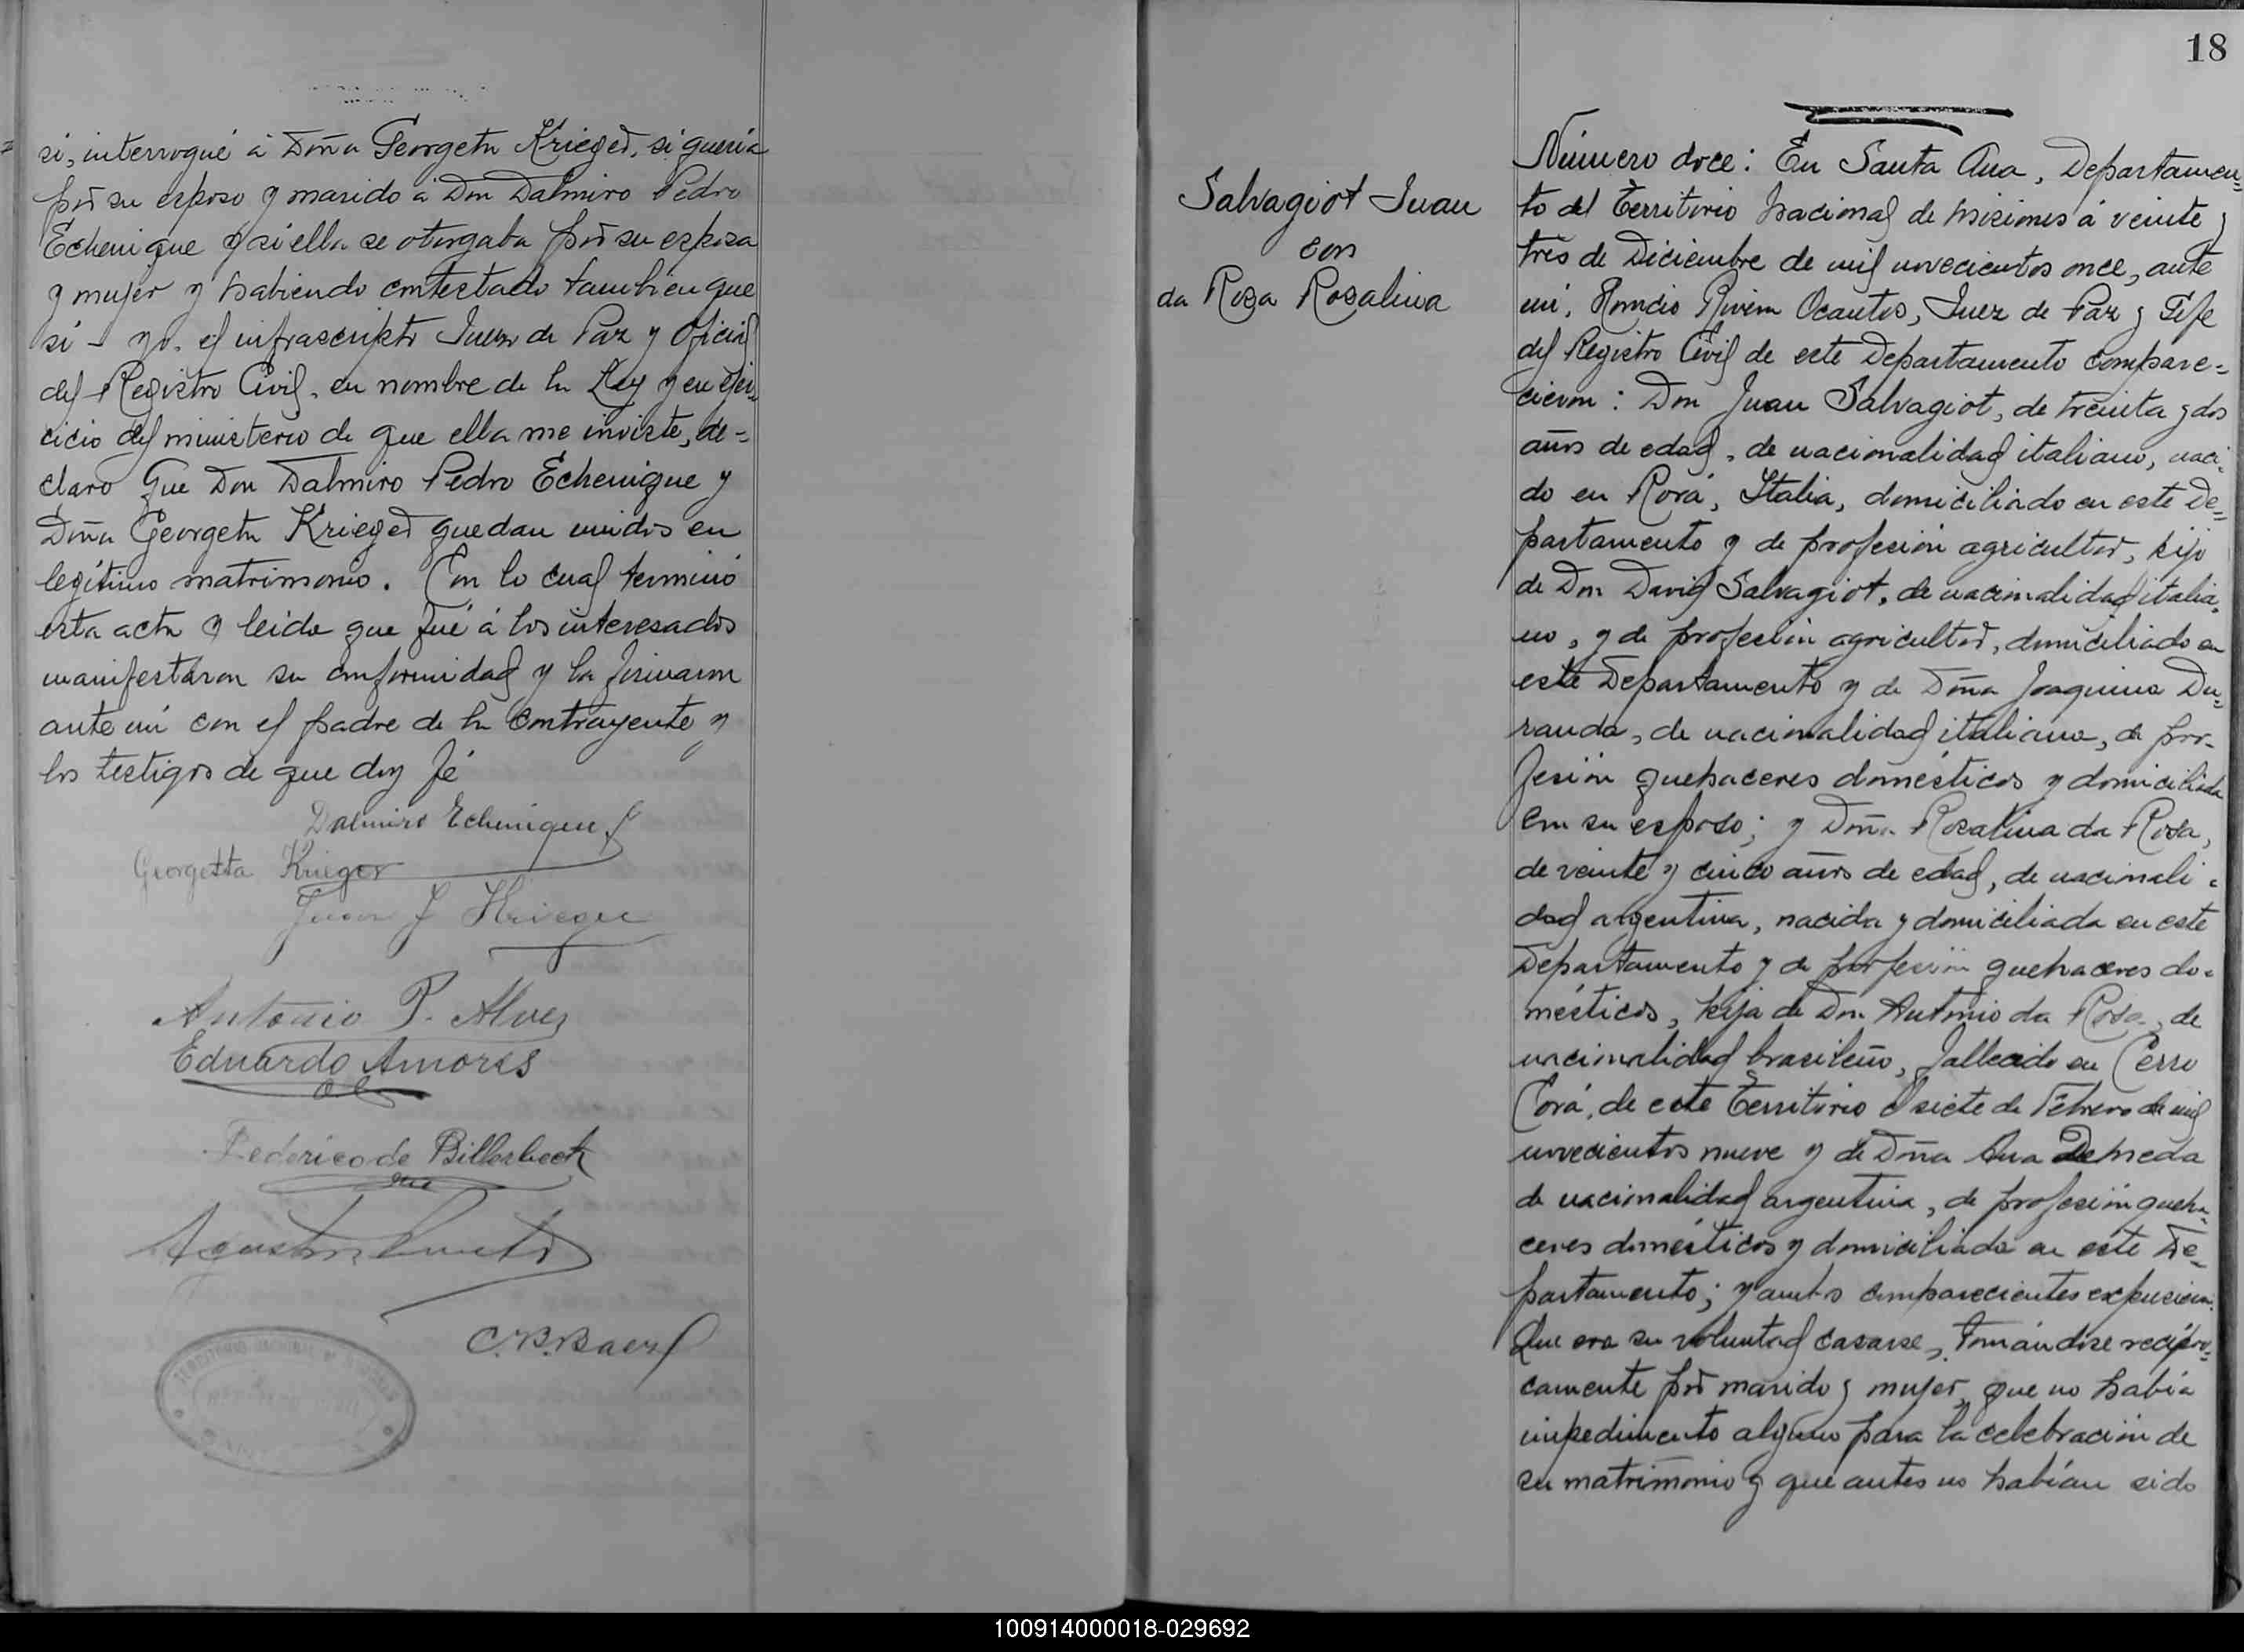 si, interrogué á Doña Georgeta Krieger, si quería
por su esposo y marido á Don Dalmiro Pedro
Echenique y si ella se otorgaba por su esposa
y mujer y habiendo contestado tambien que
si – yo, el infrascripto Juez de Paz y Oficial
del Registro Civil, en nombre de la Ley y en ejer-
cicio del ministerio de que ella me inviste, de-
claro que Don Dalmiro Pedro Echenique y
Doña Georgeta Krieger quedan unidos en
legítimo matrimonio. Con lo cual terminó
esta acta y leida que fué á los interesados
manifestaron su conformidad y la firmaron
ante mi con el padre de la contrayente y
los testigos de que doy fé
Dalmiro Echenique
Georgetta Krieger
Juan J Krieger
Antonio P. Alvez
Eduardo Amores
Federico de Billerbeck
Agustin
C. B. Baez
18
Salvagiot Juan
con
da Rosa Rosalina
Número doce: En Santa Ana, Departamen-
to del Territorio Nacional de Misiones á veinte y
tres de Diciembre de mil novecientos once, ante
mí, Horacio Rivero Ocantos, Juez de Paz y Jefe
del Registro Civil de este Departamento compare-
cieron: Don Juan Salvagiot, de treinta y dos
años de edad, de nacionalidad italiano, naci-
do en Rorá, Italia, domiciliado en este De-
partamento y de profesión agricultor, hijo
de Don David Salvagiot, de nacionalidad italia-
no, y de profesión agricultor, domiciliado en
este Departamento y de Doña Joaquina Du-
randa, de nacionalidad italiana, de pro-
fesión quehaceres domésticos y domiciliada
con su esposo; y Doña Rosalina da Rosa,
de veinte y cinco años de edad, de nacionali-
dad argentina, nacida y domiciliada en este
Departamento y de profesión quehaceres do-
mésticos, hija de Don Antonio da Rosa, de
nacionalidad brasileño, fallecido en Cerro
Corá, de este Territorio el siete de Febrero de mil
novecientos nueve y de Doña Ana
de nacionalidad argentina, de profesión queha-
ceres domésticos y domiciliada en este De-
partamento; y ambos comparecientes expusieron:
Que era su voluntad casarse, tomándose recípro-
camente por marido y mujer, que no había
impedimento alguno para la celebración de
su matrimonio y que antes no habían sido
100914000018-029692